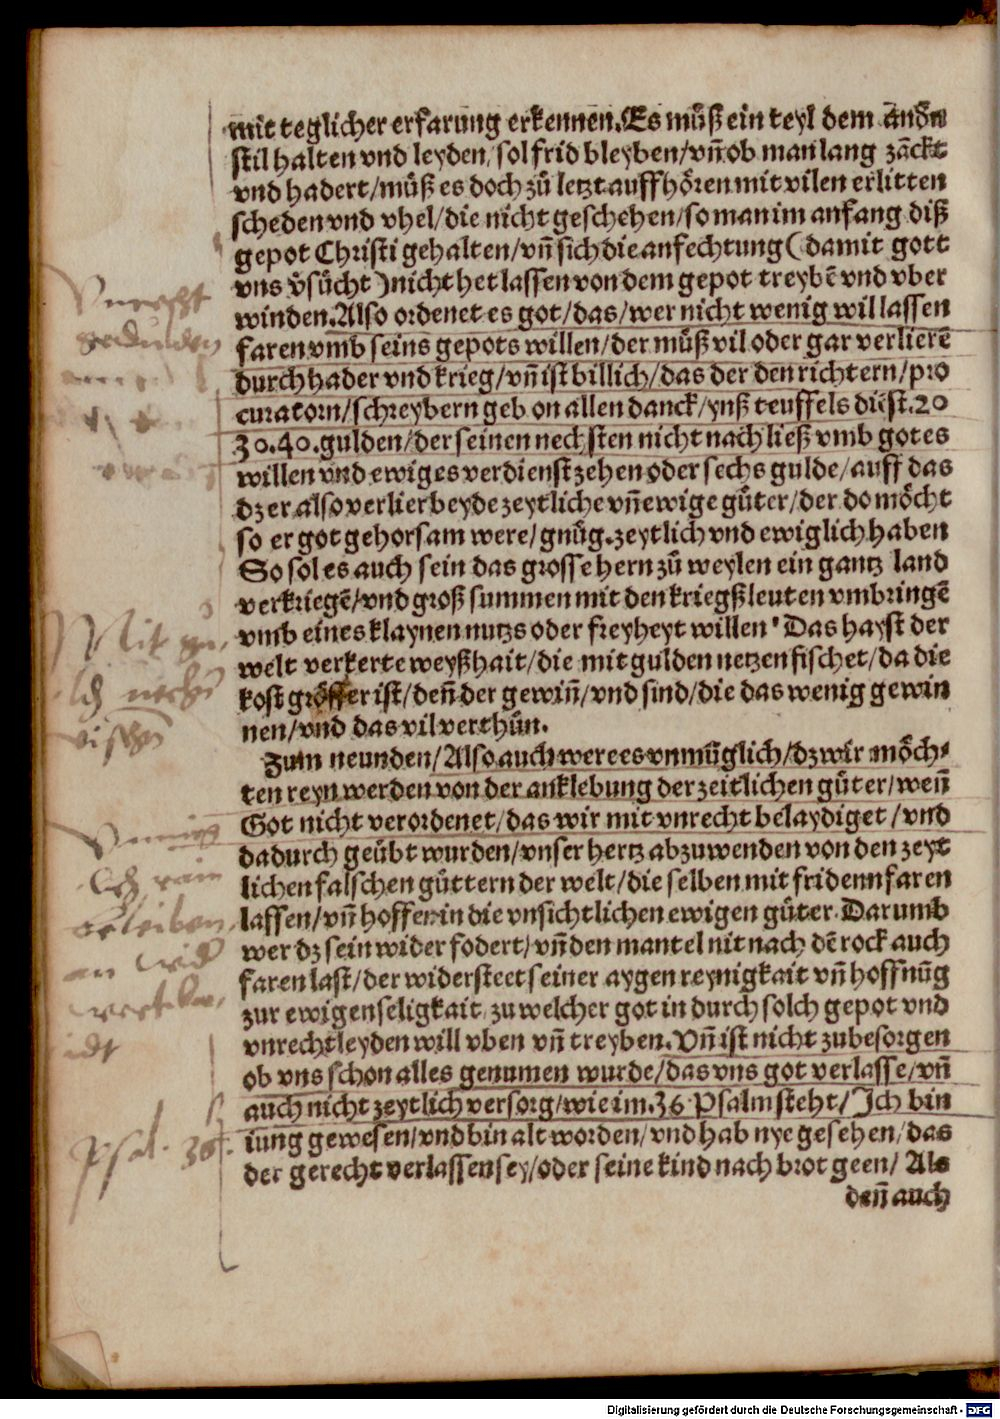 mit teglicher erfarung erkennen. Es můß ein teyl dem andn̄
stil halten vnd leyden/ sol frid bleyben/ vn̄ ob man lang zāckt
vnd hadert/ můß es doch zů letzt auffhören mit vilen erlitten
scheden vnd vbel/ die nicht geschehen/ so man im anfang diß
gepot Christi gehalten/ vn̄ sich die anfechtung (damit gott
vns v̊sůcht) nicht het lassen von dem gepot treybē vnd vber
winden. Also ordenet es got/ das/ wer nicht wenig wil lassen
faren vmb seins gepots willen/ der můß vil oder gar verlierē
durch hader vnd krieg/ vn̄ ist billich/ das der den richtern/ pro
curatorn/ schreybern geb on allen danck/ ynß teuffels diest. 20
30. 40. gulden/ der seinen nechsten nicht nach ließ vmb gotes
willen vnd ewiges verdienst zehen oder sechs gulde/ auff das
dz er also verlier beyde zeytliche vn̄ ewige gůter/ der do möcht
so er got gehorsam were/ gnůg. zeytlich vnd ewiglich haben
So sol es auch sein das grosse hern zů weylen ein gantz land
verkriegē/ vnd groß summen mit den kriegßleuten vmbringē
vmb eines klaynen nutzs oder freyheyt willen' Das hayst der
welt verkerte weyßhait/ die mit gulden netzen fischet/ da die
kost grösser ist/ den̄ der gewin̄/ vnd sind/ die das wenig gewin
nen/ vnd das vil verthůn.
Zum neunden/ Also auch were es vnmůglich/ dz wir möch⸗
ten reyn werden von der anklebung der zeitlichen gůter/ wen̄
Got nicht verordenet/ das wir mit vnrecht belaydiget/ vnd
dadurch geůbt wurden/ vnser hertz abzuwenden von den zeyt
lichen falschen gůttern der welt/ die selben mit friden faren
lassen/ vn̄ hoffen in die vnsichtlichen ewigen gůter. Darumb
wer dz sein wider fodert/ vn̄ den mantel nit nach dē rock auch
faren last/ der widersteet seiner aygen reynigkait vn̄ hoffnūg
zur ewigen seligkait/ zu welcher got in durch solch gepot vnd
vnrecht leyden will vben vn̄ treyben. Vn̄ ist nicht zubesorgen
ob vns schon alles genumen wurde/ das vns got verlasse/ vn̄
auch nicht zeytlich versorg/ wie im. 36 Psalm steht/ Ich bin
iung gewesen/ vnd bin alt worden/ vnd hab nye gesehen/ das
der gerecht verlassen sey/ oder seine kind nach brot geen/ Als
den̄ auch
Vnrecht
gedulden
Mit
vischen
rain
bleiben
Psal. 36.
Digitalisierung gefördert durch die Deutsche Forschungsgemeinschaft - DFG